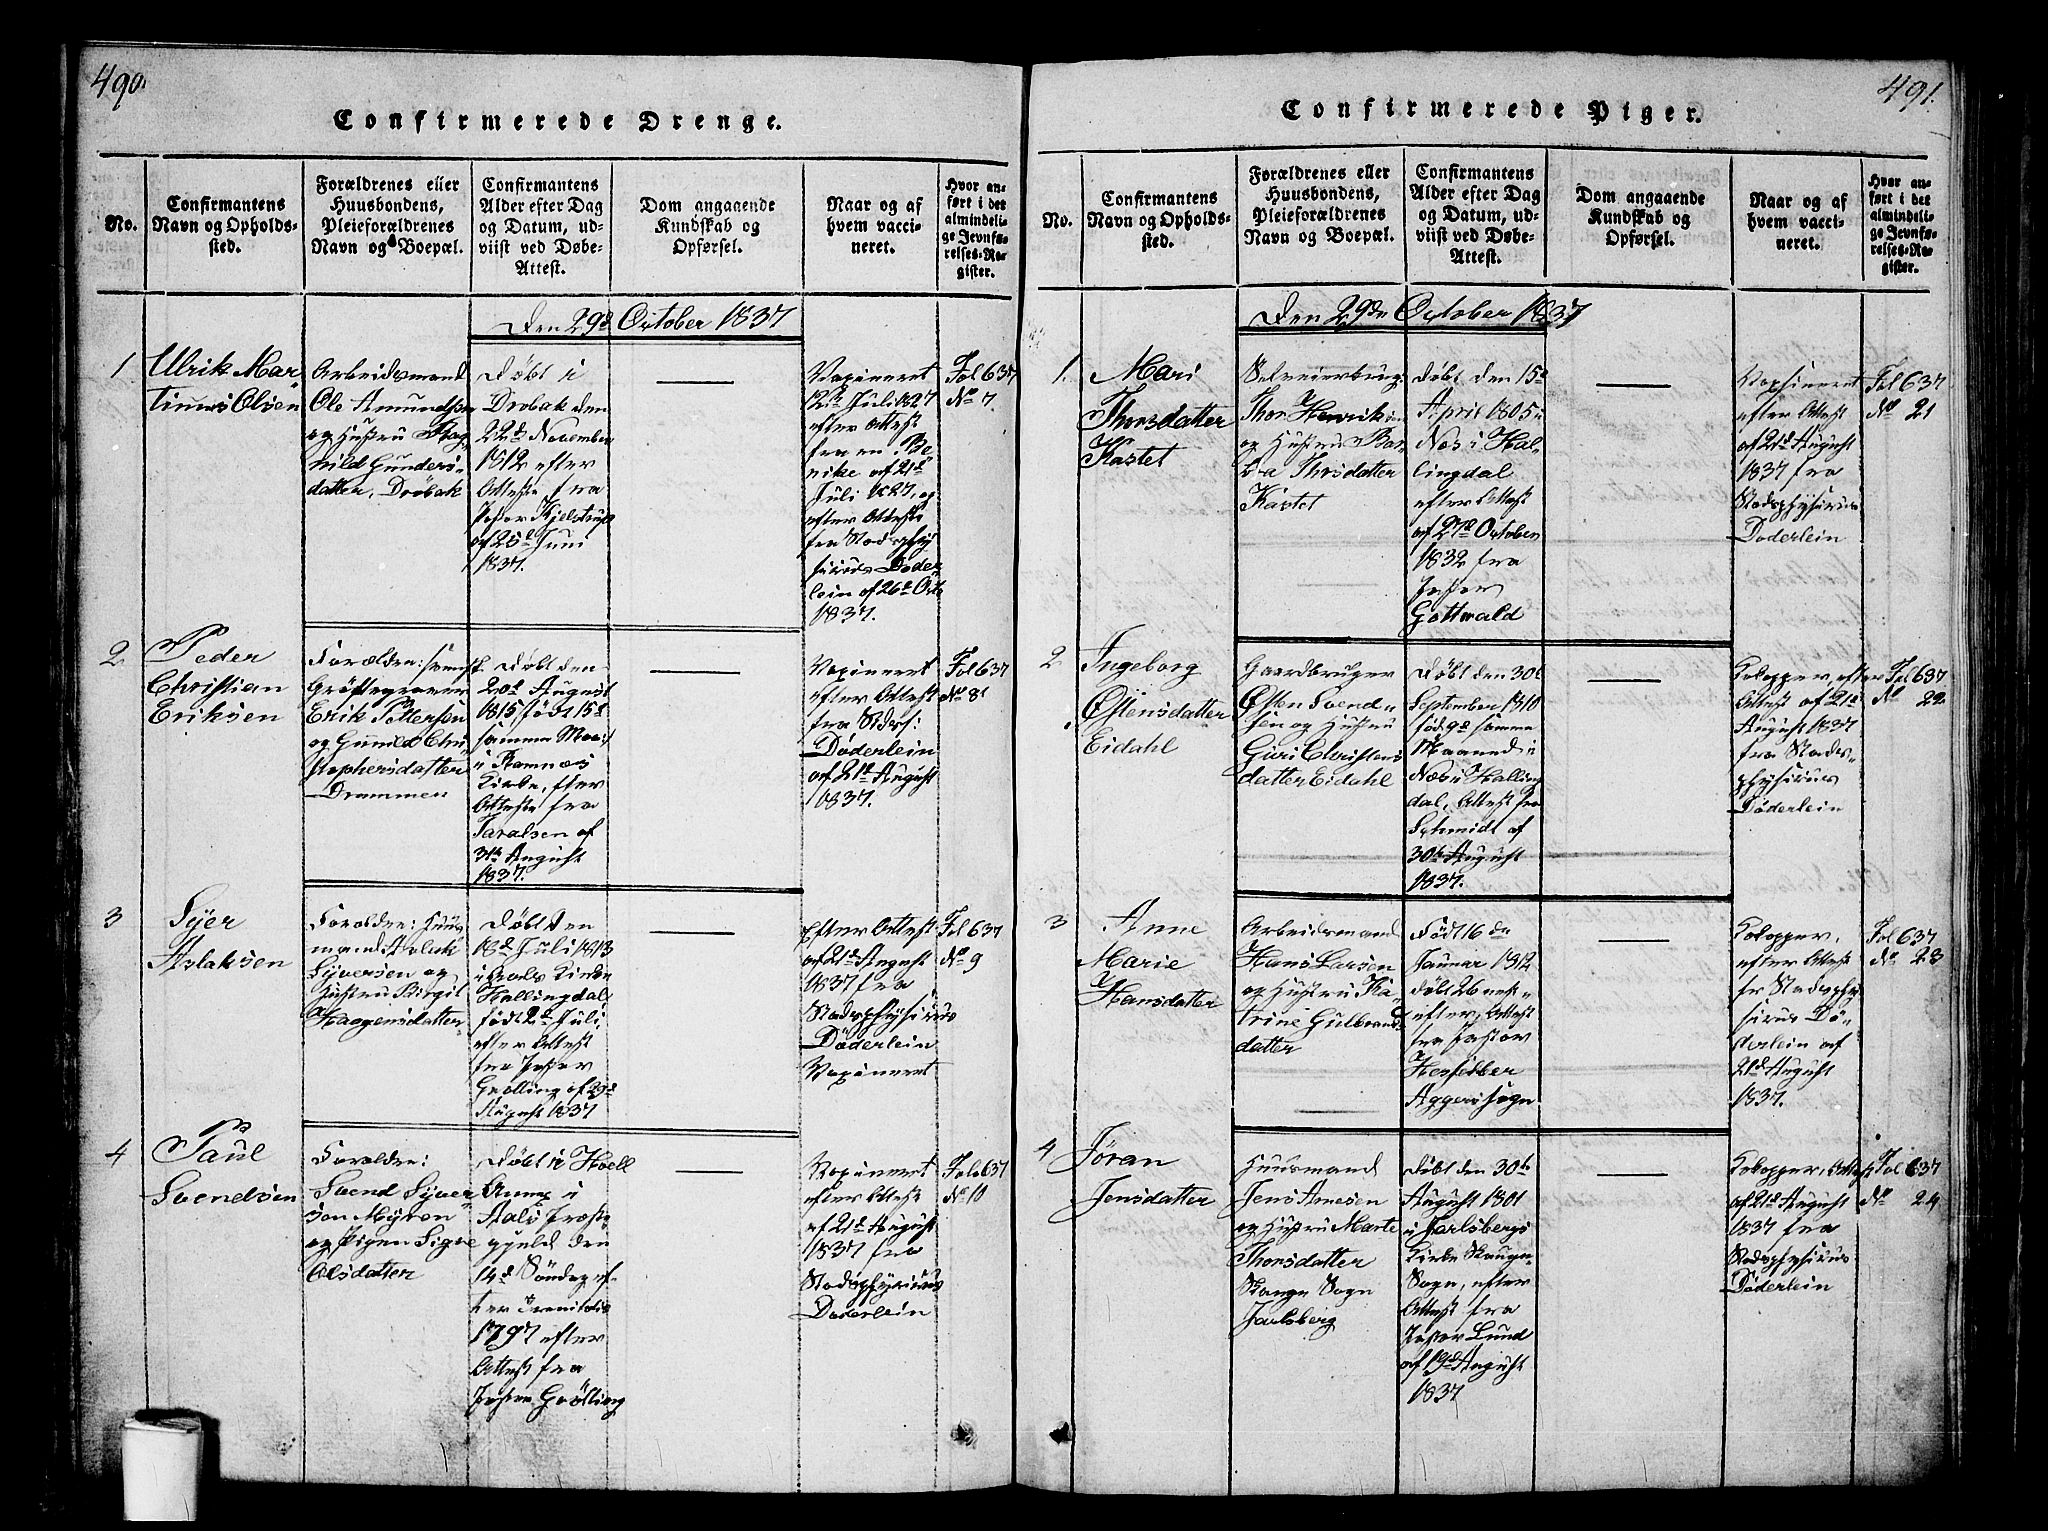 490.
Confirmerede Drenge.
No.
Confirmantens
Navn og Opholds-
sted.
Forældrenes eller
Huusbondens,
Pleieforældrenes
Navn og Boepæl.
Confirmantens
Alder efter Dag
og Datum, ud-
viist ved Døbe-
Attest.
Dom angaaende
Kundskab og
Opførsel.
Naar og af
hvem vacci-
neret.
Hvor an-
ført i det
almindeli-
ge Jevnfø-
relses-Re-
gister.
Den 29d October 1837
1
Ulrik Mar
tinus Olsen
Arbeidsmand
Ole Amundsen
og Hustru Rag
nild Gunders
datter, Drøbak
Døbt i
Drøbak den
22d November
1812 efter
Attest fra
Pastor Kjelstrup
af 25d Juni
1837.
Vaxineret
12te Juli 1827
efter Attest
fra
af 21d
Juli 1827, og
efter Attest
fra Stadsphy
sicus Døder
lein af 26d Oct
1837.
Fol 637
No 7.
2
Peder
Christian
Eriksen
Forældre: svensk
Grøftegraver
Erik Pettersen
og Gunild Chri
stophersdatter
Drammen
Døbt den
20d August
1815, født 15d
samme Maan
i Ramnæs
Kirke, efter
Attest fra
Taralsen af
31te August
1837.
Vaxineret
efter Attest
fra Stads:
Døderlein
af 21d August
1837.
Fol 637
No 8
3
Syer
Aslaksen
Forældre: Huus
mand Aslak
Syversen og
Hustru Birgit
Haagensdatter
Døbt den
18d Juli 1813
i Aals Kirke
Hallingdal,
født 2d Juli,
efter Attest
fra Pastor
Grølling af 29d
August 1837
Efter Attest
af 21d August
1837 fra
Stadsphysicus
Døderlein
Vaxineret
Fol 637
No 9
4
Paul
Svendsen
Forældre:
Svend Syver
sen Myren
og Pigen Signe
Olsdatter
Døbt i Hoell
Annex i
Aals Præste
gjeld den
14d Søndag ef
ter Trenitatis
1797 efter
Attest fra
Pastor Grølling
Vaxineret
efter Attest
af 21d August
1837 fra
Stadsphysicus
Døderlein
Fol 637
No 10
491.
Confirmerede Piger.
No.
Confirmantens
Navn og Opholds-
sted.
Forældrenes eller
Huusbondens,
Pleieforældrenes
Navn og Boepæl.
Confirmantens
Alder efter Dag
og Datum, ud-
viist ved Døbe-
Attest.
Dom angaaende
Kundskab og
Opførsel.
Naar og af
hvem vacci-
neret.
Hvor an-
ført i det
almindeli-
ge Jevnfø-
relses-Re-
gister.
Den 29de October 1837
1.
Mari
Thorsdatter
Kastet
Selveierbrug:
Thor Henriksen
og Hustru Bar
bra Thorsdatter
Kastet
Døbt den 15d
April 1805 i
Næs i Hal-
lingdal
efter Attest
af 27d October
1832 fra
Pastor
Gottwald
Vaxsineret
efter Attest
af 21d August
1837 fra
Stadsphysicus
Døderlein
Fol 637
No 21
2
Ingeborg
Østensdatter
Eidahl
Gaardbruger
Østen Svend-
sen og Hustru
Guri Christens
datter Eidahl
Døbt den 30d
September 1810
fød 9d samme
Maaned i
Næs i Halling
dal, Attest fra
Schmidt af
30te August
1837.
Kokopper, efter
Attest af 21d
August 1837
fra Stads-
physicus
Døderlein
Fol 637
No 22
3
Anne
Marie
Hansdatter
Arbeidsmand
Hans Larsen
og Hustru Ka-
trine Gulbrands
datter
Født 16de
Januar 1812
døbt 26 næst-
efter, Attest
fra Pastor
Hesselber
Aggers sogn
Kokopper,
efter Attest
fr Stadsphy
sicus Dø-
derlein af
21d August
1837.
Fol 637
No 23
4
Jøran
Jensdatter
Huusmand
Jens Arnesen
og Hustru Marte
Thorsdatter
Skauge Sogn
Jarlsberg
Døbt den 30te
August 1801
i Jarlsbergs
Kirke Skauge
Sogn, efter
Attest fra
Pastor Lund
af 19d August
1837
Kokopper, Attest
af 21d August
1837 fra
Stadsphysicus
Døderlein
Fol 637
No 24